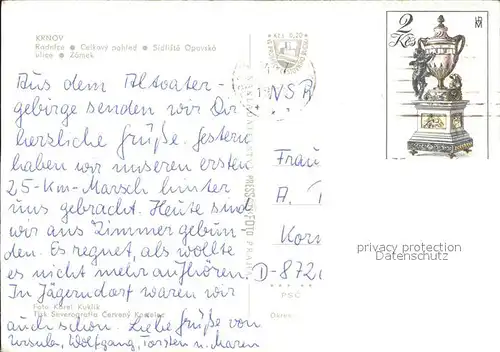 KRNOV
Radnice • Celkový pohled • Sídliště Opavská
ulice • Zámek
Kčs 0,20
2
Kčs
Aus dem Altvater-
gebirge senden wir Dir
herzliche Grüße. Gestern
haben wir unseren ersten
25-Km-Marsch hinter
uns gebracht. Heute sind
wir ans Zimmer gebun-
den. Es regnet, als wollte
es nicht mehr aufhören.
In Jägerndorf waren wir
auch schon. Liebe Grüße von
Ursula, Wolfgang, Torsten u. Maren
Foto Karel Kuklík
Tisk Severografia Červený Kostelec
PRESSFOTO PRAHA
NSR
Frau
A.
Kor
D-872
PSČ
Okres
privacy protection
Datenschutz